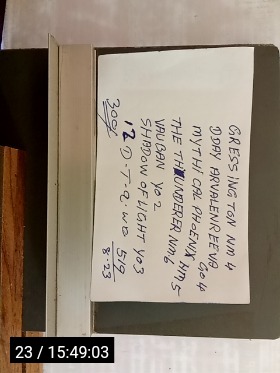 GRESSINGTON NM 4
DDAY ARVALENREEVA GO 4
MYTHICAL PHOENIX HM 5
THE THUNDERER NM 6
VAUGAN YO 2
SHADOW OF LIGHT YO3
12 D-T-Q. WO 519
300/ 8.23
23 / 15:49:03